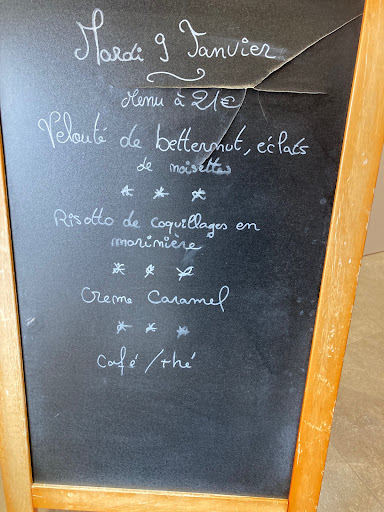 Mardi 9 Janvier
Menu à 21€
Velouté de betternut, éclats
de noisettes
* * *
Risotto de coquillages en
marinière
* * *
Creme Caramel
* * *
Café / thé